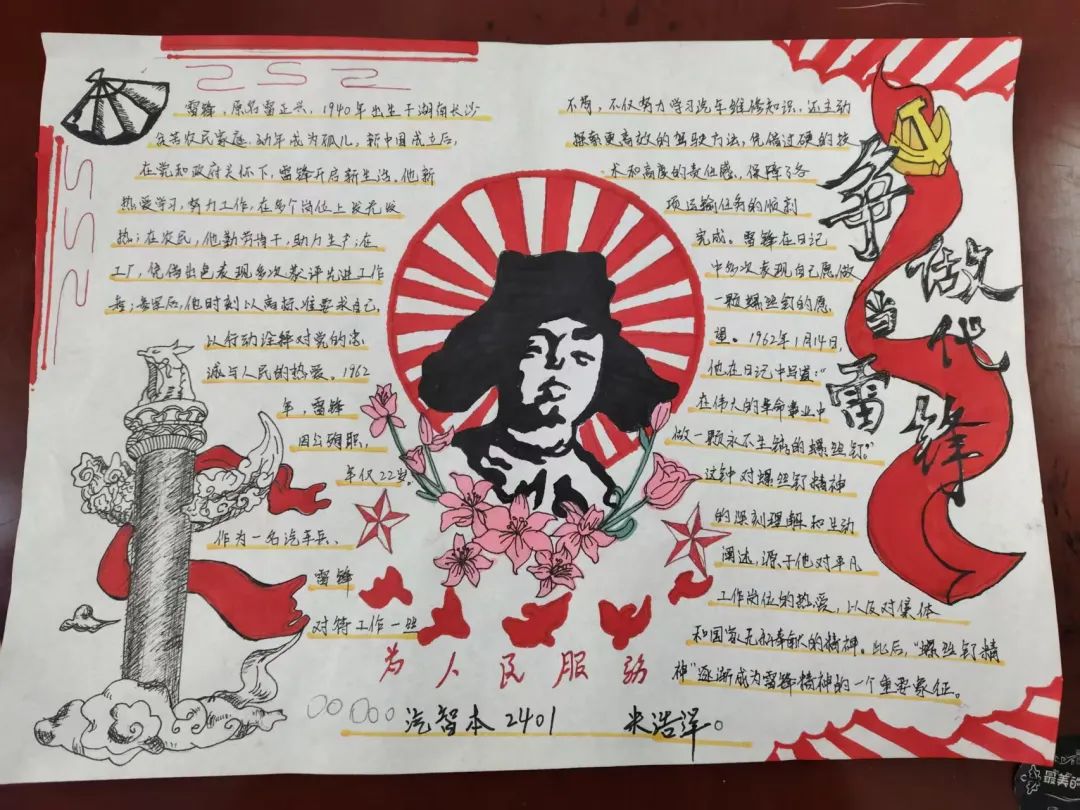 雷锋，原名雷正兴，1940年出生于湖南长沙
贫苦农民家庭。幼年成为孤儿，新中国成立后，
在党和政府关怀下，雷锋开启新生活。他新
热爱学习，努力工作，在多个岗位上发光发
热；在农民，他勤劳肯干，助力生产；在
工厂，凭借出色表现多次获评先进工作
者；参军后，他时刻以高标准要求自己，
以行动诠释对党的忠
诚与人民的热爱。1962
年，雷锋
因公殉职，
年仅22岁。
作为一名汽车兵、
雷锋
对待工作一丝
不苟，不仅努力学习汽车维修知识，还主动
探索更高效的驾驶方法，凭借过硬的技
术和高度的责任感，保障了各
项运输任务的顺利
完成。雷锋在日记
中多次表现自己愿做
一颗螺丝钉的愿
望。1962年1月14日，
他在日记中写道："
在伟大的革命事业中
做一颗永不生锈的螺丝钉。"
这钟对螺丝钉精神
的深刻理解和生动
阐述，源于他对平凡
工作岗位的热爱，以及对集体
和国家无私奉献的精神。此后，"螺丝钉精
神"逐渐成为雷锋精神的一个重要象征。
争做当代雷锋
为人民服务
汽智本2401 米浩泽。
最美的